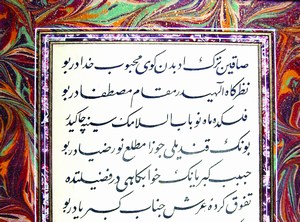 صاقين ترك ادبدن كوى محبوب خدادر بو
نظركاه الهيدر مقام مصطفادر بو
فلكده ماه نو باب السلامك سينه چاكيدر
بونك قنديلى جوزا مطلع نور ضيادر بو
حبيب كبريانك خوابكاهى در فضيلتده
تفوق كردۀ عرش جناب كبريادر بو